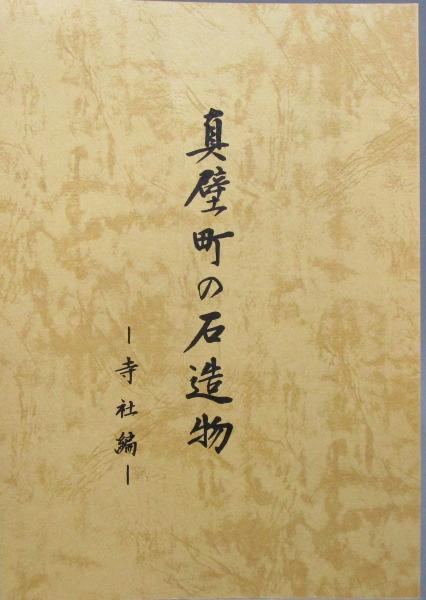 真壁町の石造物
ー寺社編ー